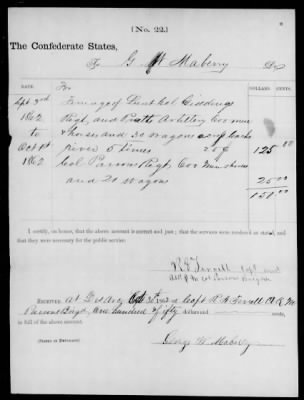 [No. 22.]
The Confederate States,
To G W Maberry Dr
DATE. DOLLARS. CENTS.
For
Sept 3rd Ferriage of Lieut Col Giddings
1862 Regt, and Pratts Artillery men
to & horses and 30 wagons
Oct 1st river 5 times 25¢ 125 00
1862 Col Parsons Regt, men & horses
and 20 wagons 25 00
150.00
I certify, on honor, that the above account is correct and just; that the services were rendered as stated, and
that they were necessary for the public service.
R F Ferrell Capt and
Col Parsons Brigade
RECEIVED, at 30th 1862 of Capt R F Ferrell A Q M
Parsons Brigd, One hundred & fifty dollars and cents,
in full of the above account.
[SIGNED IN DUPLICATE.] George W Maberry